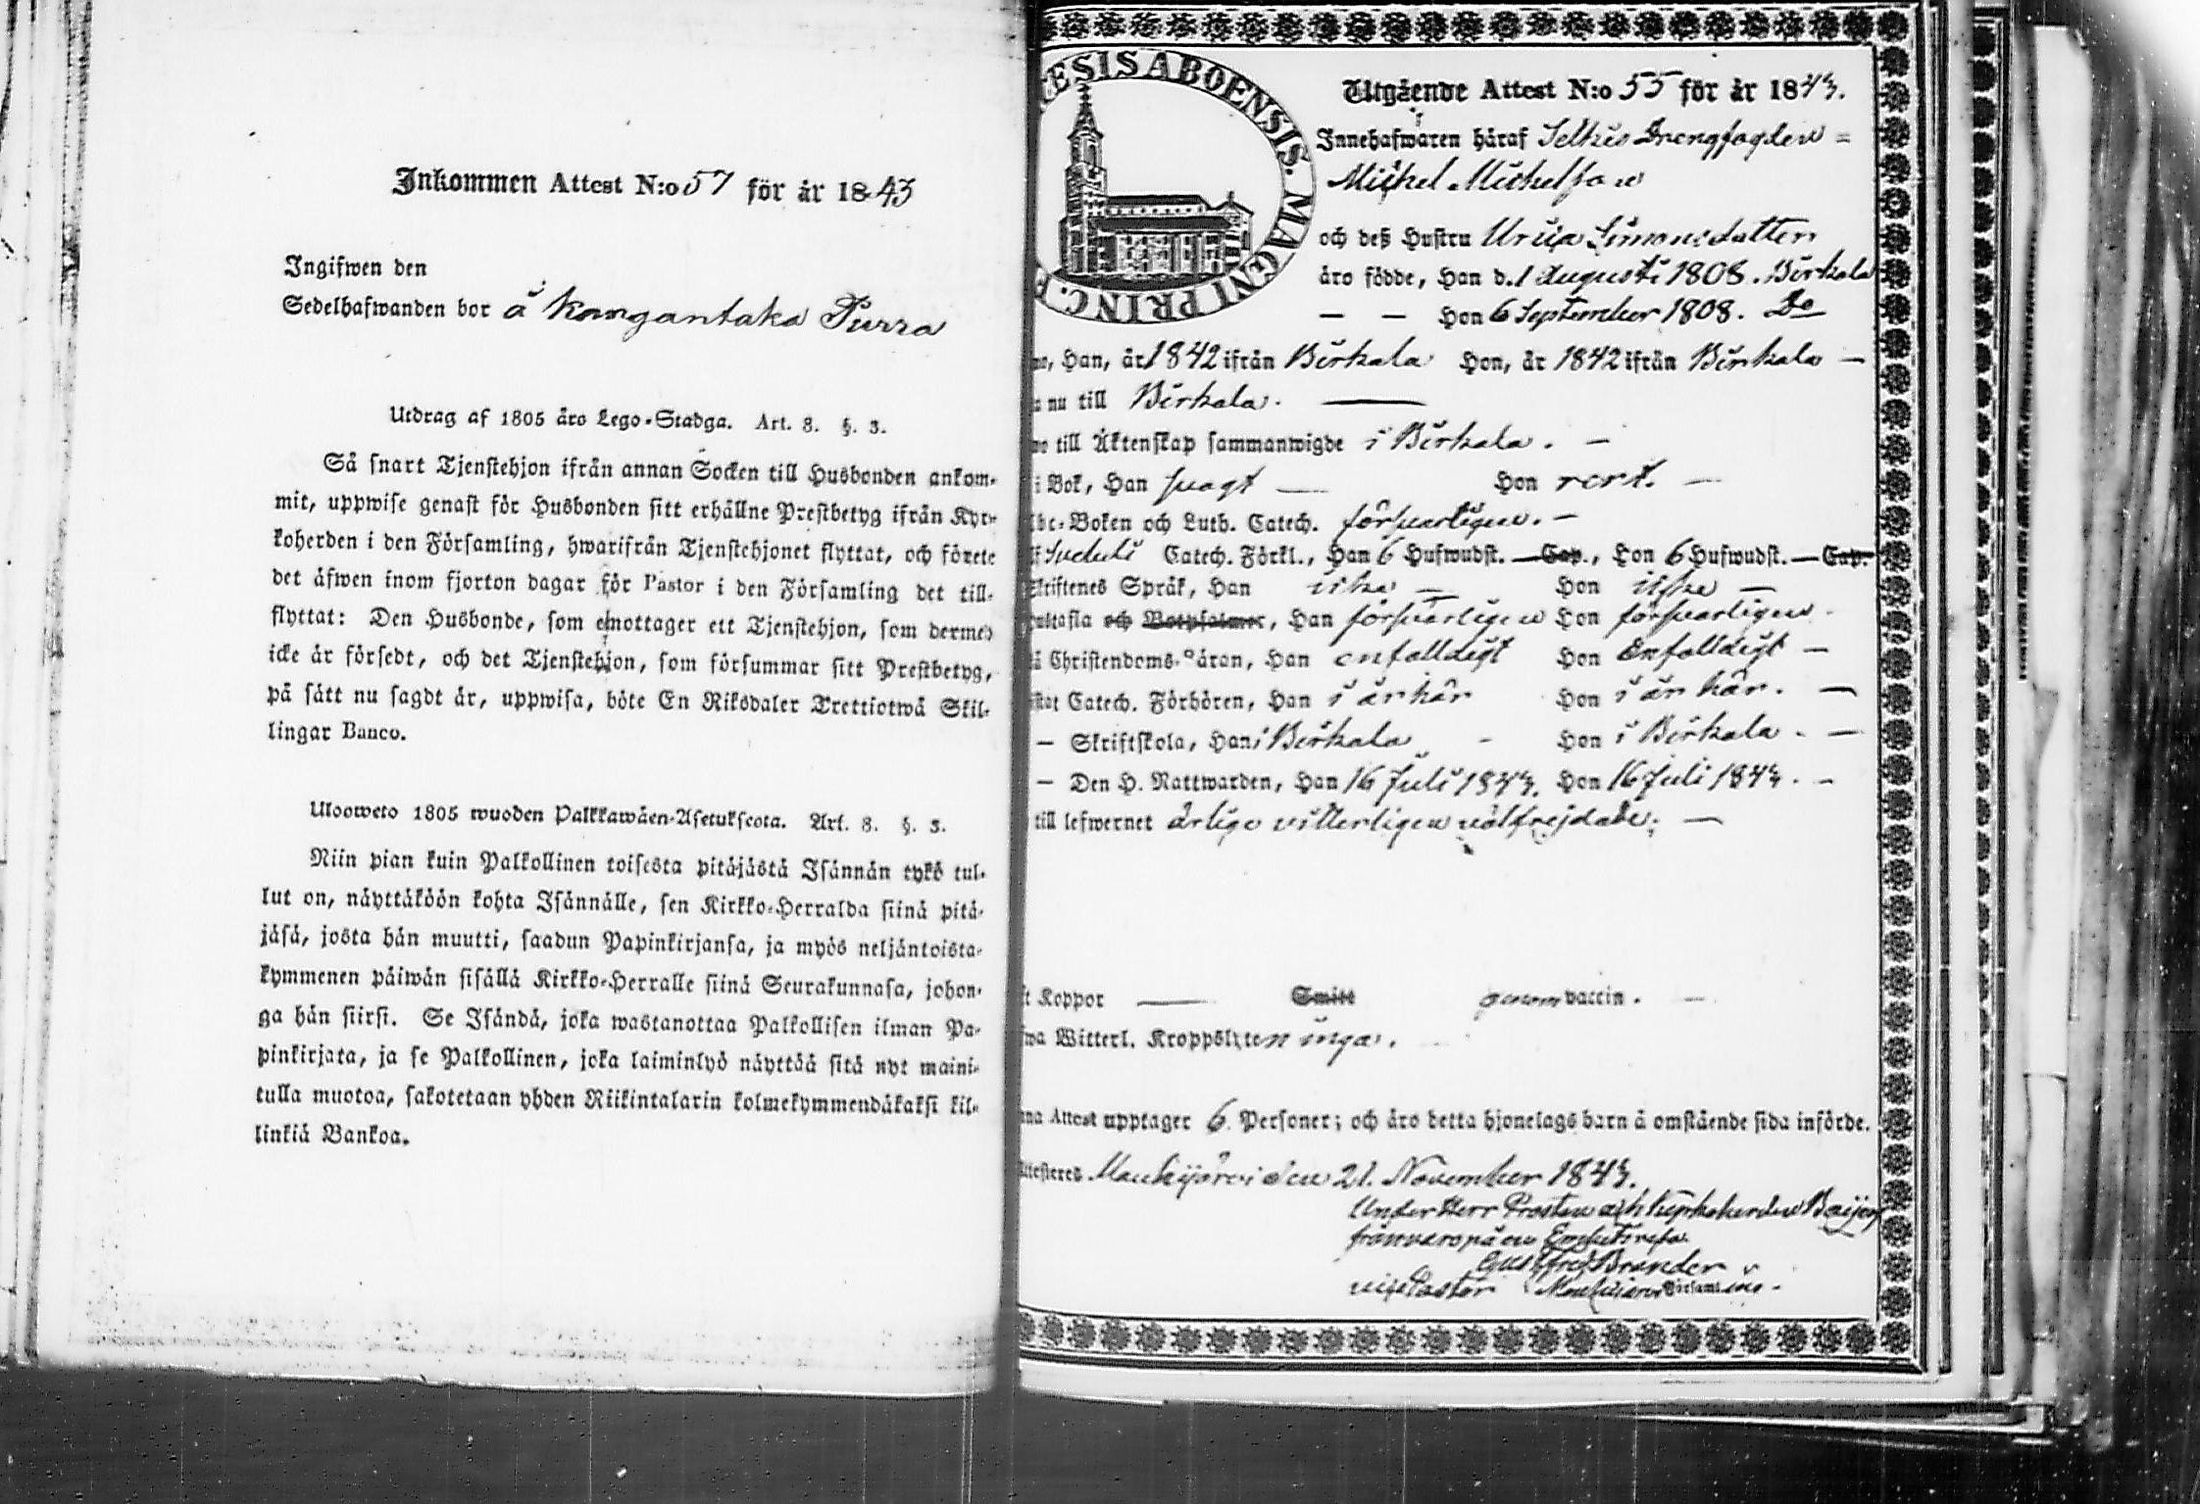 Inkommen Attest N:o 57 för år 1843
Ingifwen den
Sedelhafwanden bor å Kangantaka Purra
Utdrag af 1805 års Lego-Stadga. Art. 8. §. 3.
Så snart Tjenstehjon ifrån annan Socken till Husbonden ankom-
mit, uppwise genast för Husbonden sitt erhållne Prestbetyg ifrån Kyr-
koherden i den Församling, hwarifrån Tjenstehjonet flyttat, och förete
det äfwen inom fjorton dagar för Pastor i den Församling det till-
flyttat: Den Husbonde, som emottager ett Tjenstehjon, som dermed
icke är försedt, och det Tjenstehjon, som försummar sitt Prestbetyg,
på sätt nu sagdt är, uppwisa, böte En Riksdaler Trettiotwå Skil-
lingar Banco.
Ulosweto 1805 wuoden Palkkawäen-Asetuksesta. Art. 8. §. 3.
Niin pian kuin Palkollinen toisesta pitäjästä Isännän tykö tul-
lut on, näyttäköön kohta Isännälle, sen Kirkko-Herralda siinä pitä-
jäsä, josta hän muutti, saadun Papinkirjansa, ja myös neljäntoista-
kymmenen päiwän sisällä Kirkko-Herralle siinä Seurakunnasa, johon-
ga hän siirsi. Se Isändä, joka wastanottaa Palkollisen ilman Pa-
pinkirjata, ja se Palkollinen, joka laiminlyö näyttää sitä nyt maini-
tulla muotoa, sakotetaan yhden Riikintalarin kolmekymmendäkaksi kil-
linkiä Bankoa.
ESIS ABOENSIS. MAGNI PRINC. F
Utgående Attest N:o 55 för år 1843.
Innehafwaren häraf Selkis Drengfogden
Michel Michelsson
och deß Hustru Ursia Simonsdotter
äro födde, Han d. 1 Augusti 1808. Birkala
— — Hon 6 September 1808. Do
Han, år 1842 ifrån Birkala Hon, år 1842 ifrån Birkala —
nu till Birkala. —
till Äktenskap sammanwigde i Birkala. —
i Bok, Han svagt — Hon rent. —
Boken och Luth. Catech. försvarligen. —
Svebeli Catech. Förkl., Han 6 Hufwudst. — Cap., Hon 6 Hufwudst. — Cap.
Skriftenes Språk, Han icke — Hon icke —
hustafla och Botpsalmer, Han försvarligen Hon försvarligen
Christendoms-Läran, Han enfalldigt Hon Enfalldigt —
Catech. Förhören, Han i år här Hon i år här. —
— Skriftskola, Han i Birkala - Hon i Birkala. —
— Den H. Nattwarden, Han 16 Juli 1843. Hon 16 Juli 1843. —
till lefwernet ärlige vitterligen välfrejdade. —
Koppor — Smitt genom vaccin. —
Witterl. Kroppslyten inga.
Attest upptager 6 Personer; och äro detta hjonelags barn å omstående sida införde.
Attesteres Mouhijärvi den 21. November 1843.
Under Herr Prosten och Kyrkoherden
frånvaro på en Embetsresa
Brander
vice Pastor Mouhijärvi